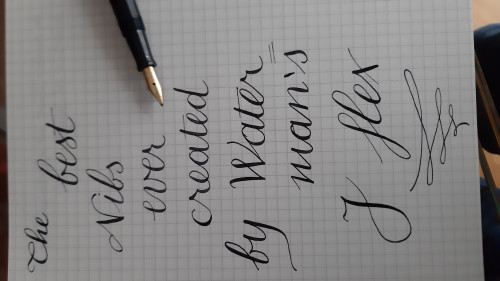 The
best
Nibs
ever
created
by Water=
man's
J flex